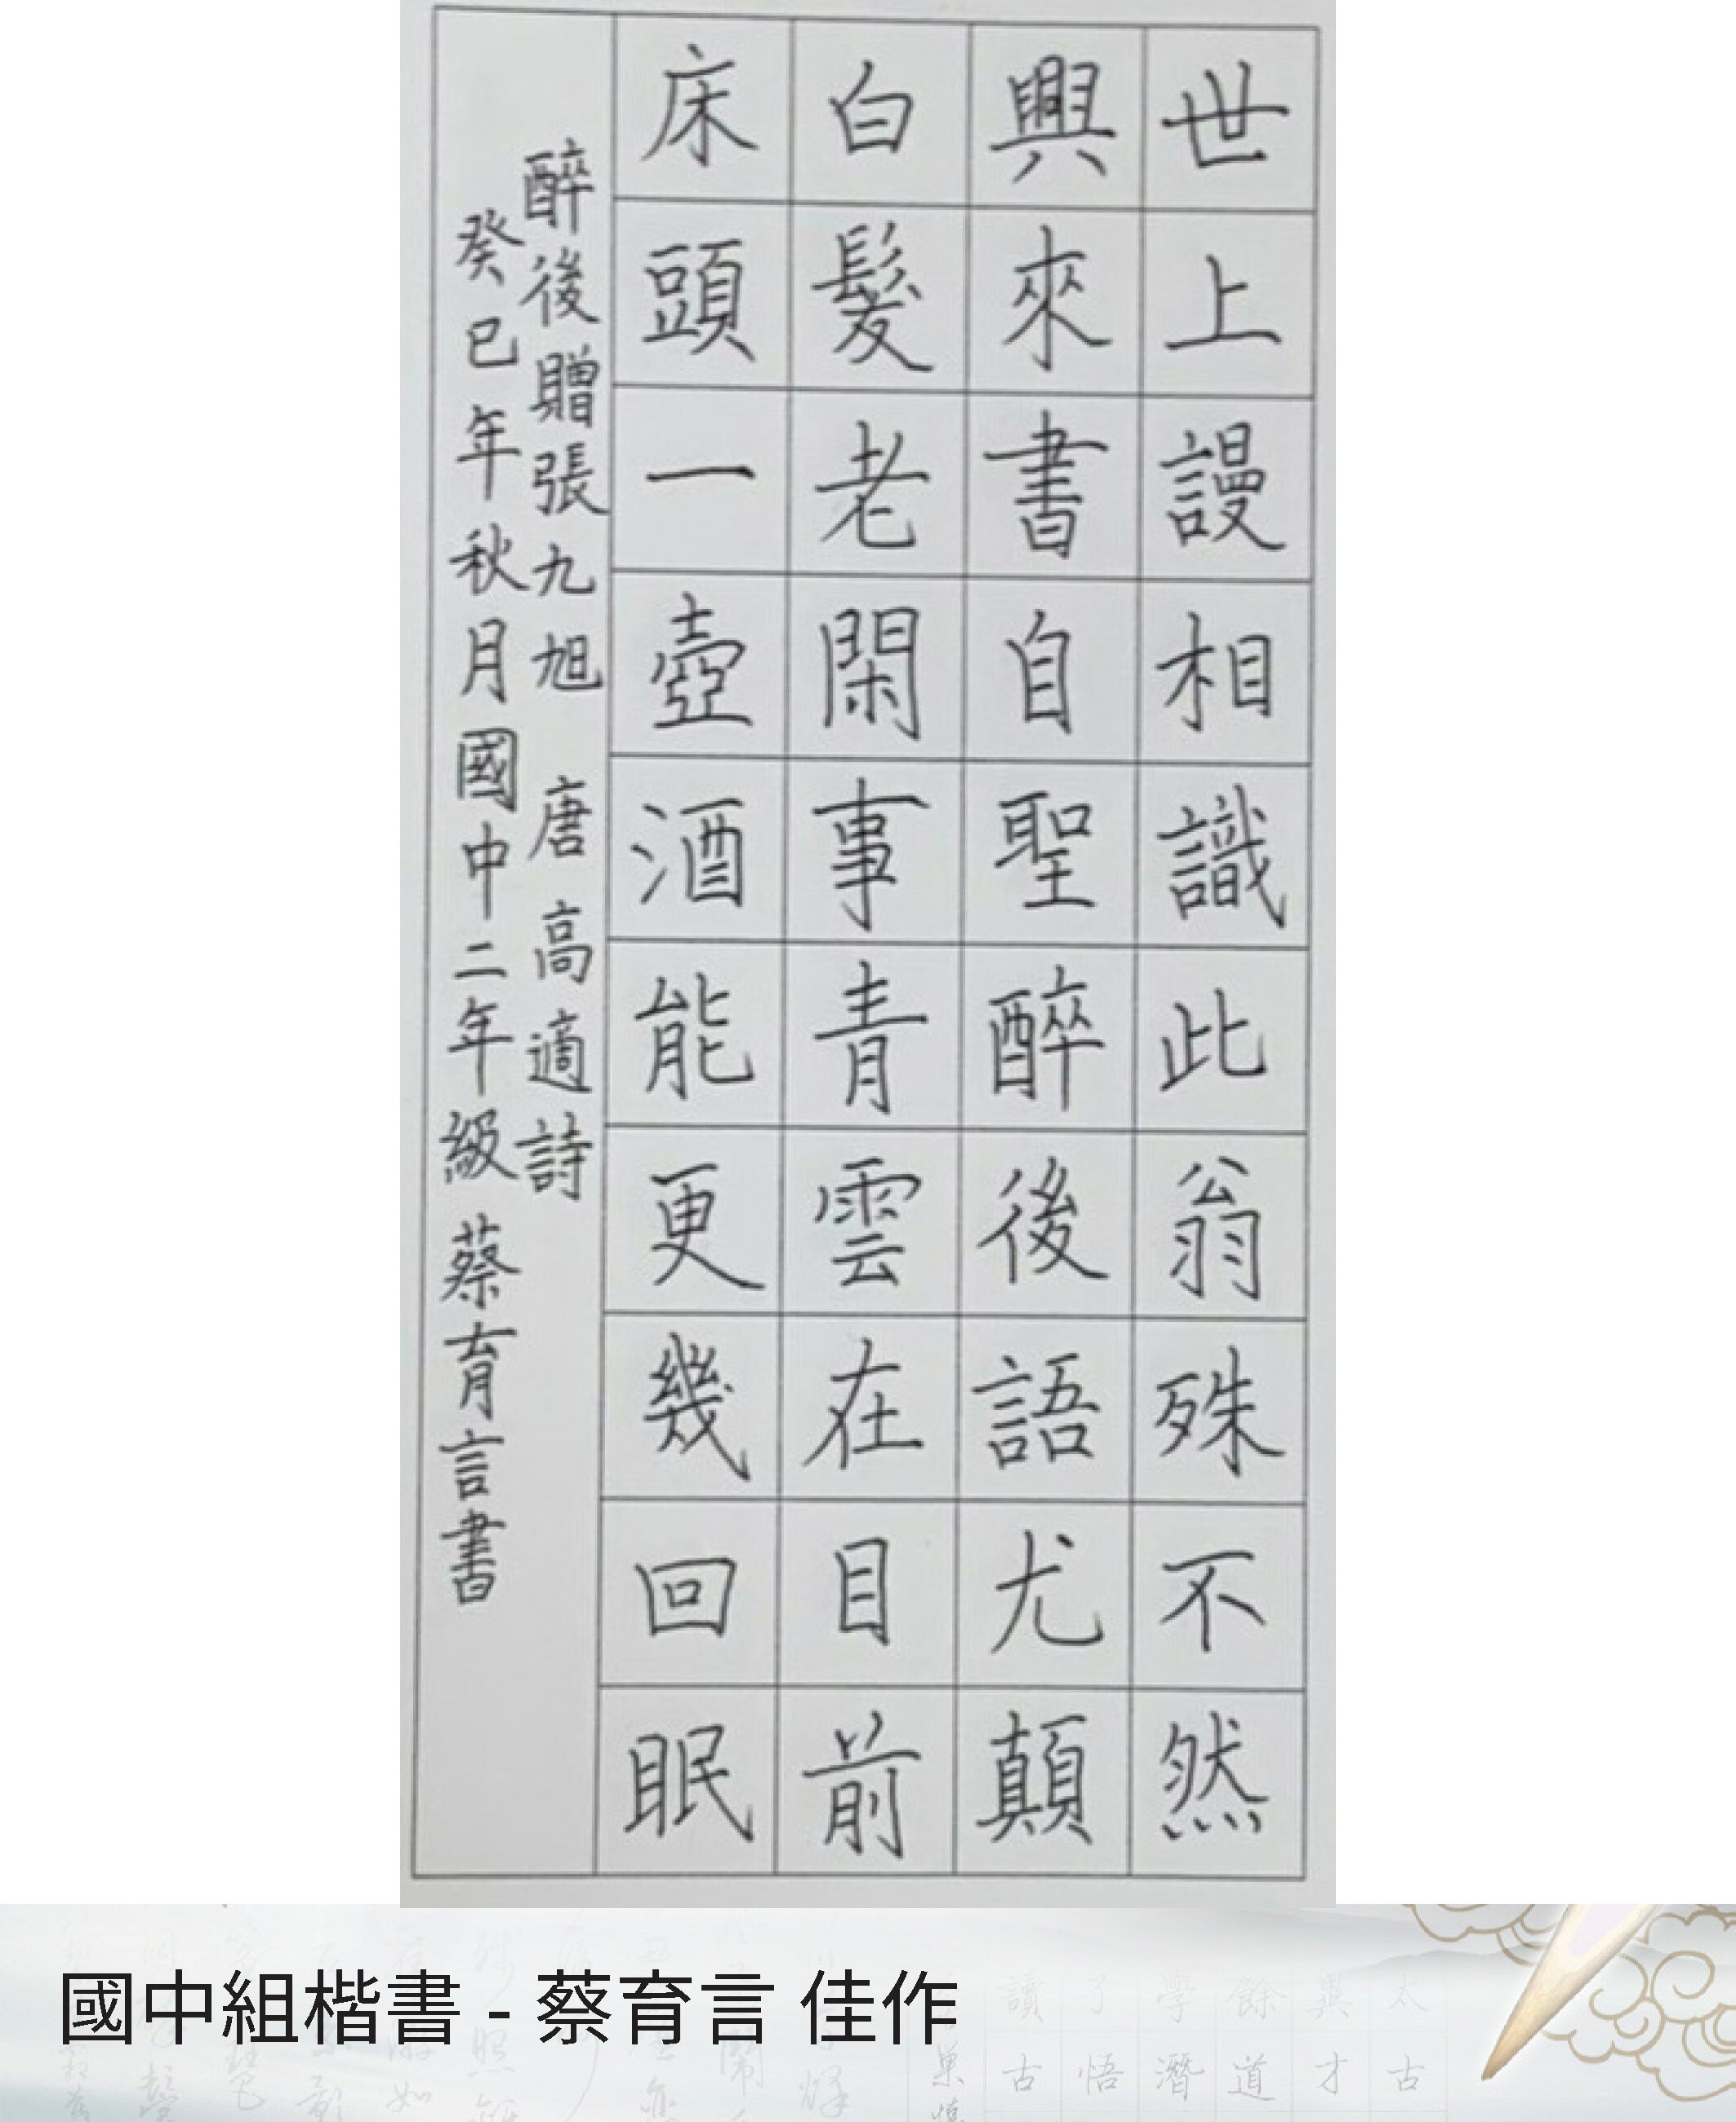 世上謾相識此翁殊不然
興來書自聖醉後語尤顛
白髮老閑事青雲在目前
床頭一壺酒能更幾回眠
醉後贈張九旭 唐 高適詩
癸巳年秋月國中二年級 蔡育言書
國中組楷書 - 蔡育言 佳作